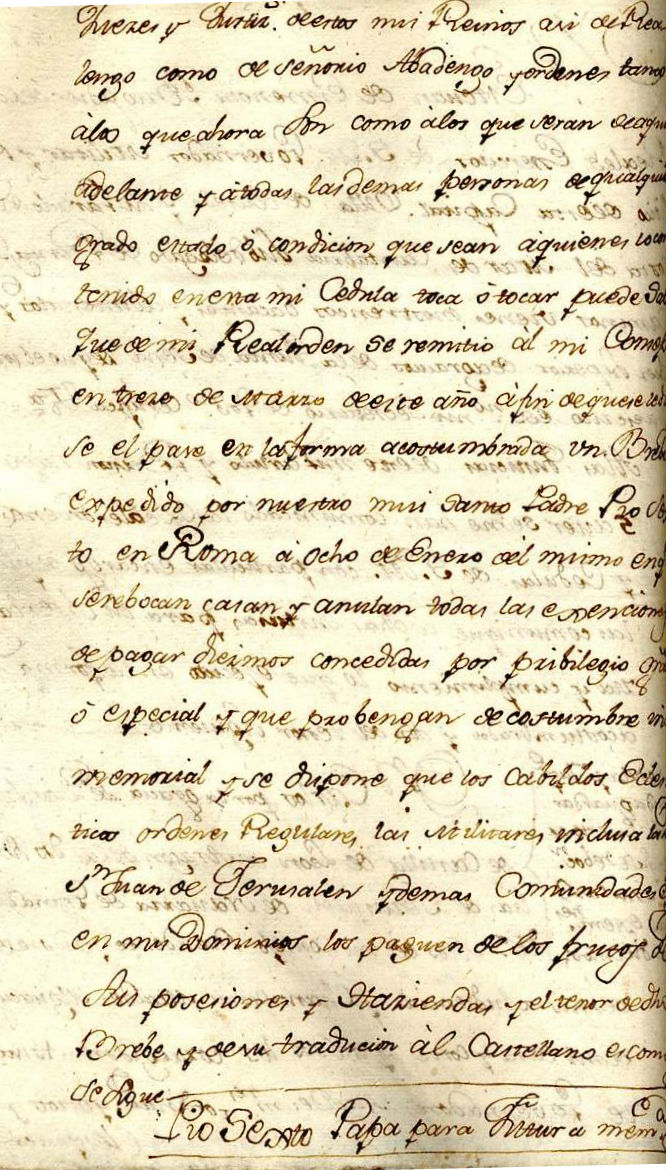 Juezes y Justiz. de estos mis Reinos asi de Rea
lengo como de señorio Abadengo y ordenes tanto
álos que ahora son como àlos que seran de aqui
adelante y átodas las demas personas de qualqui
grado estado ó condicion que sean áquienes lo con
tenido en esta mi Cedula toca ó tocar puede Sa
que de mi Real orden se remitio ál mi Conse
en treze de Marzo de este año áfin de que se
se el pase en la forma acostumbrada un Brebe
expedido por nuestro mui Santo Padre Pio Sex
to en Roma á ocho de Enero del mismo en q
se rebocan casan y anulan todas las exenciones
de pagar diezmos concedidas por pribilegio gral
ó especial y que probengan de costumbre in
memorial y se dispone que los Cabildos Ecles
ticos ordenes Regulares, las Militares inclusa la
Sn Juan de Jerusalen y demas Comunidades
en mis Dominios los paguen de los frutos d
sus posesiones y Haziendas y el tenor de dho
Brebe y de su traducion àl Castellano es como
se sigue
Pio Sexto Papa para futura mem